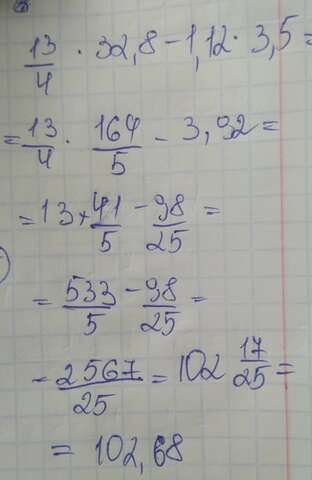 13/4 · 32,8 - 1,12 · 3,5 =
= 13/4 · 164/5 - 3,92 =
= 13 × 41/5 - 98/25 =
= 533/5 - 98/25 =
- 2567/25 = 102 17/25 =
= 102,68